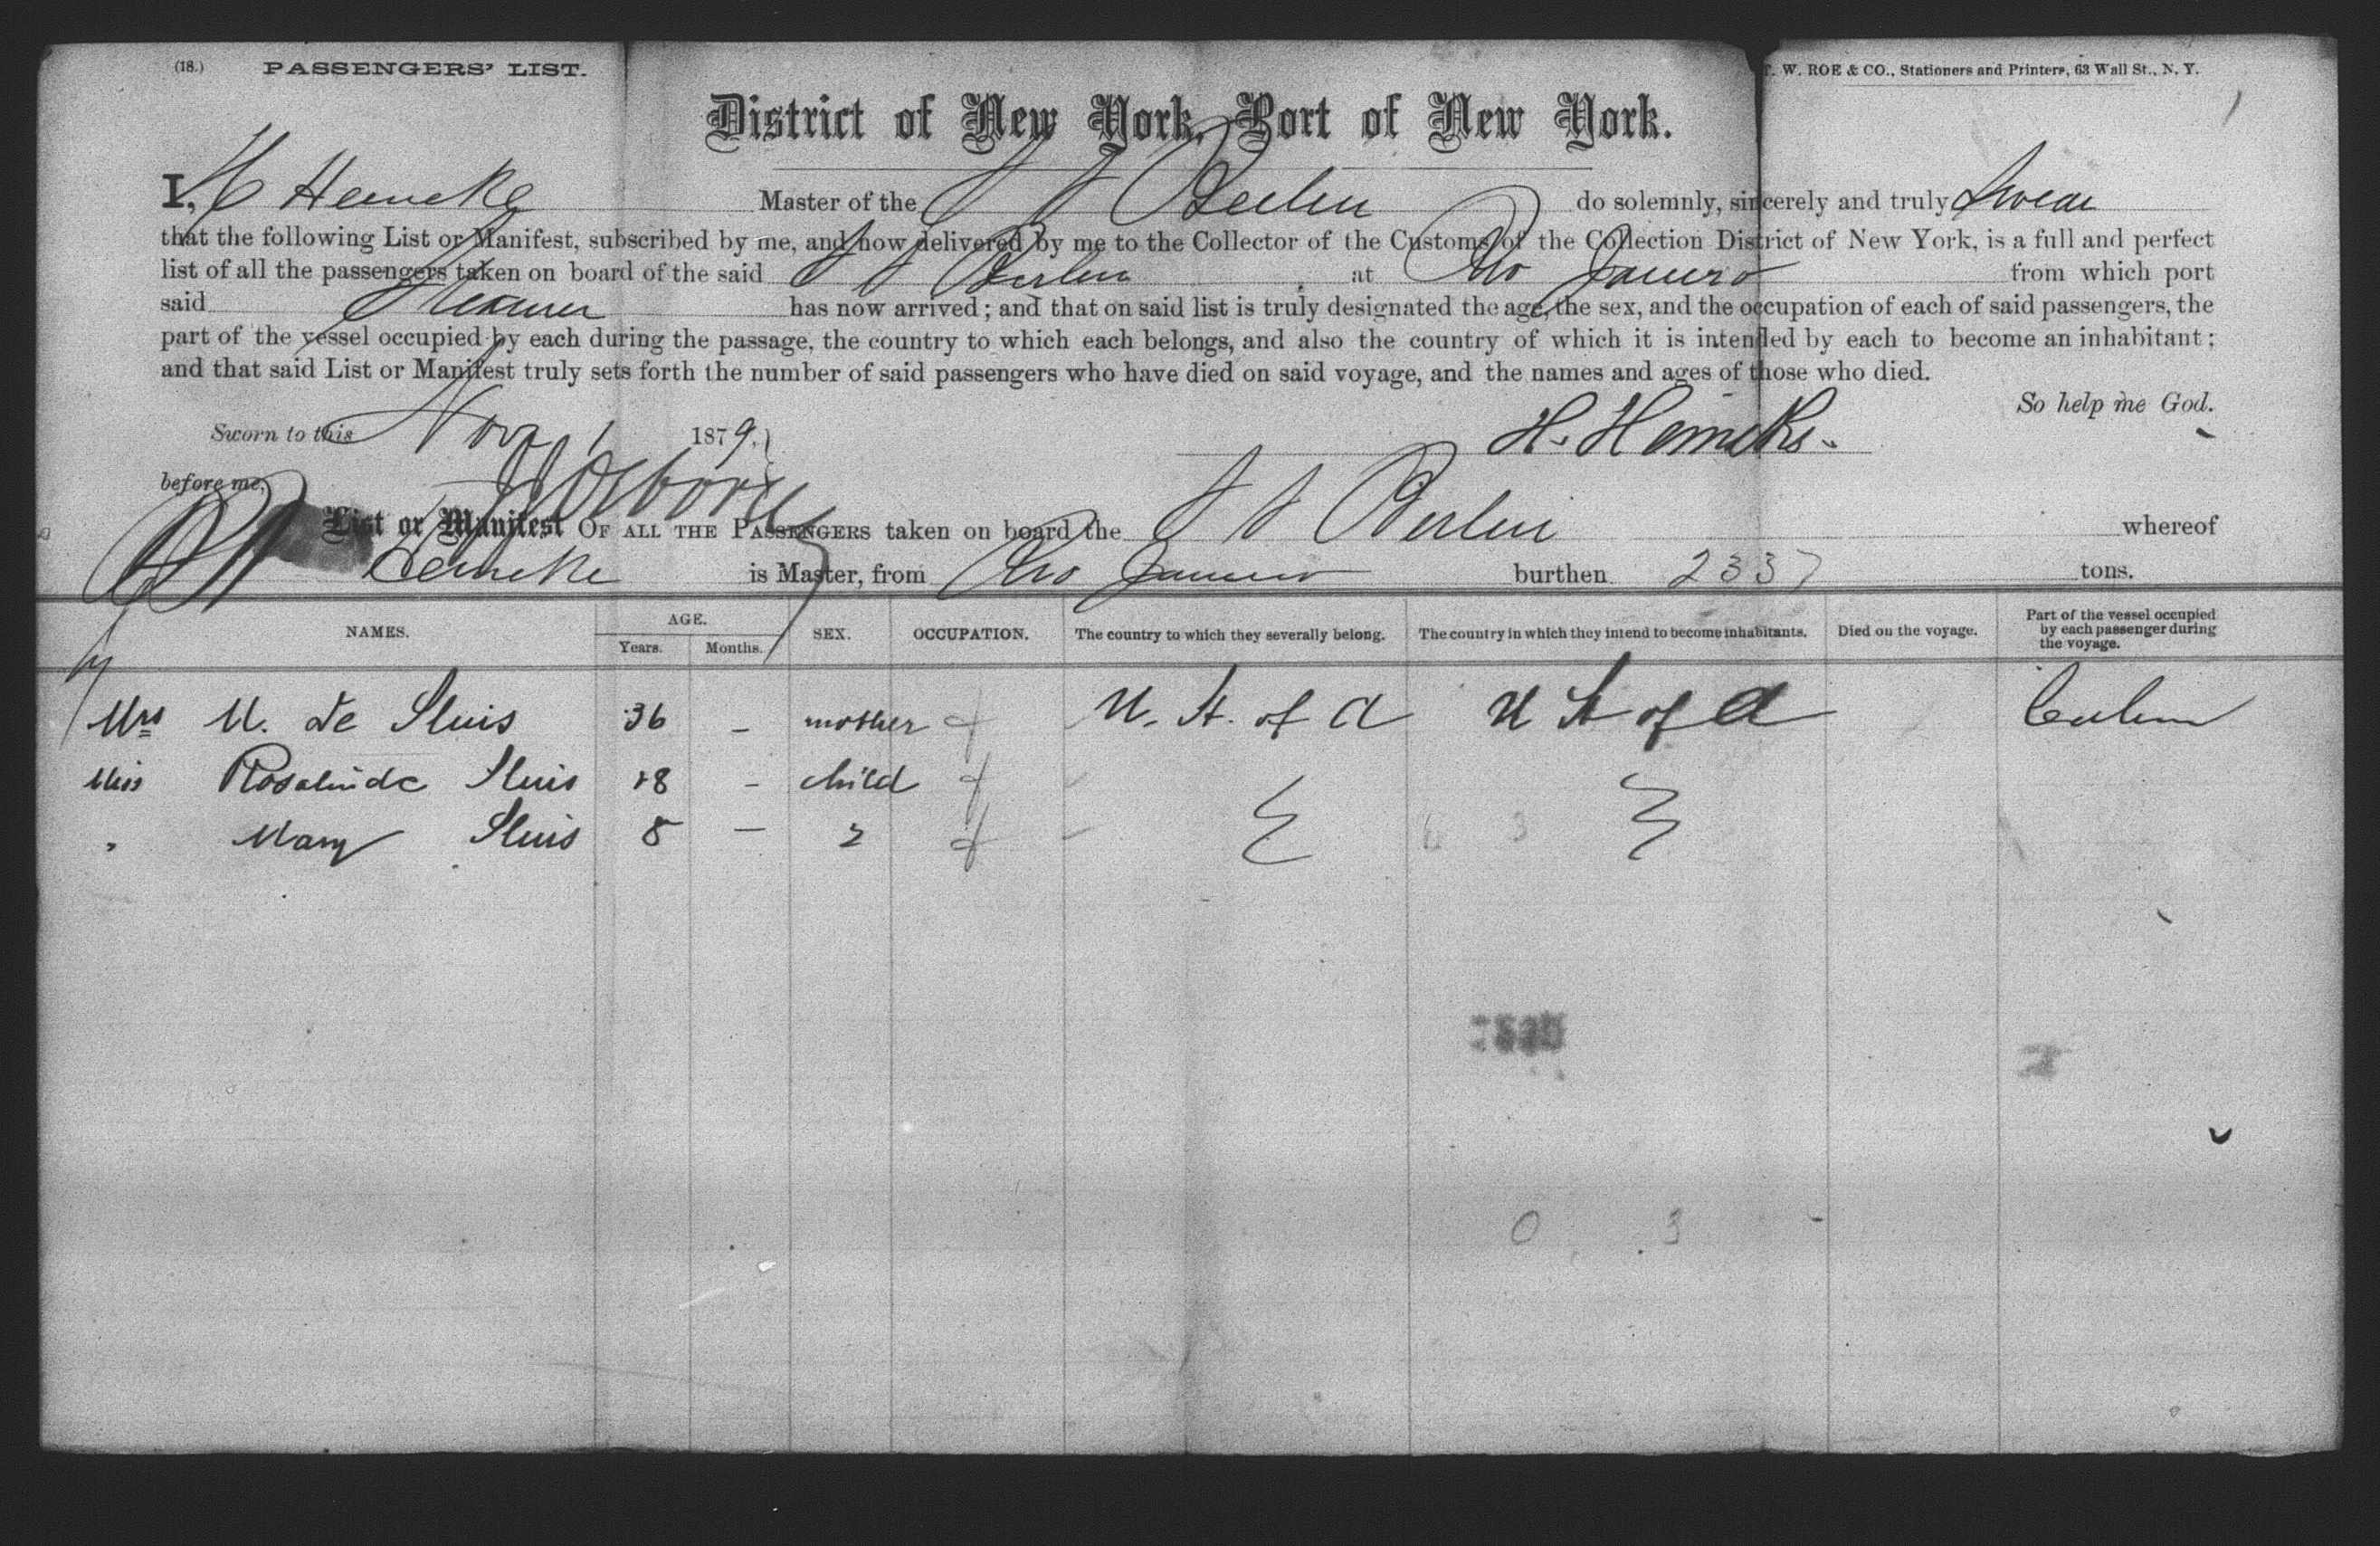 (18.) PASSENGERS' LIST.
T. W. ROE & CO., Stationers and Printers, 63 Wall St., N. Y.
District of New York, Port of New York.
I, H Heincke Master of the S S Berlin do solemnly, sincerely and truly Swear
that the following List or Manifest, subscribed by me, and now delivered by me to the Collector of the Customs of the Collection District of New York, is a full and perfect
list of all the passengers taken on board of the said S S Berlin at Rio Janeiro from which port
said Steamer has now arrived; and that on said list is truly designated the age, the sex, and the occupation of each of said passengers, the
part of the vessel occupied by each during the passage, the country to which each belongs, and also the country of which it is intended by each to become an inhabitant;
and that said List or Manifest truly sets forth the number of said passengers who have died on said voyage, and the names and ages of those who died.
So help me God.
Sworn to this Nov 1 1879. H. Heincke.
before me, Osborn
List or Manifest OF ALL THE PASSENGERS taken on board the S S Berlin whereof
Heincke is Master, from Rio Janeiro burthen 2337 tons.
NAMES. AGE. Years. Months. SEX. OCCUPATION. The country to which they severally belong. The country in which they intend to become inhabitants. Died on the voyage. Part of the vessel occupied by each passenger during the voyage.
Mrs M. de Sluis 36 - mother U. St. of A U St of A
Miss Rosalinde Sluis 18 - child
" Mary Sluis 8 -
0 3